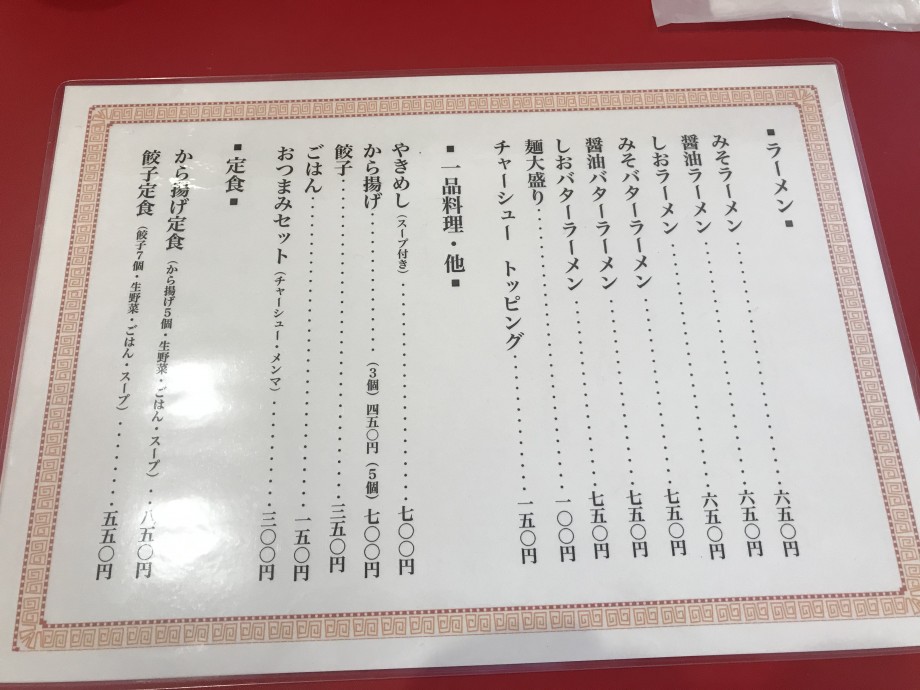 ■ラーメン■
みそラーメン……………………六五〇円
醤油ラーメン……………………六五〇円
しおラーメン……………………六五〇円
みそバターラーメン……………………七五〇円
醤油バターラーメン……………………七五〇円
しおバターラーメン……………………七五〇円
麺大盛り……………………一〇〇円
チャーシュー トッピング……………………一五〇円
■一品料理・他■
やきめし（スープ付き）……………………七〇〇円
から揚げ……………………（３個）四五〇円（５個）七〇〇円
餃子……………………三五〇円
ごはん……………………一五〇円
おつまみセット（チャーシュー・メンマ）……………………三〇〇円
■定食■
から揚げ定食（から揚げ５個・生野菜・ごはん・スープ）…八五〇円
餃子定食（餃子７個・生野菜・ごはん・スープ）……………五五〇円